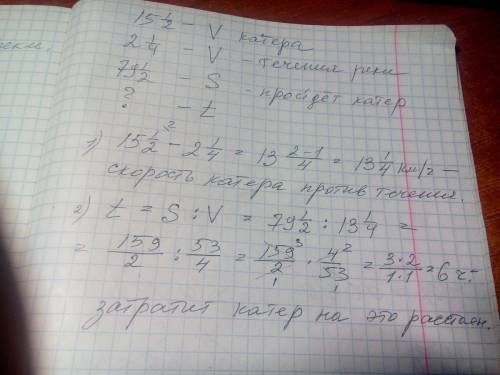 15 1/2 – V катера
2 1/4 – V – течения реки
79 1/2 – S – пройдёт катер
? – t
1) 15 1/2² – 2 1/4 = 13 (2–1)/4 = 13 1/4 км/ч –
скорость катера против течения.
2) t = S : V = 79 1/2 : 13 1/4 =
= 159/2 : 53/4 = 159³/2₁ · 4²/53₁ = (3·2)/(1·1) = 6 ч.
затратит катер на это расстоян.